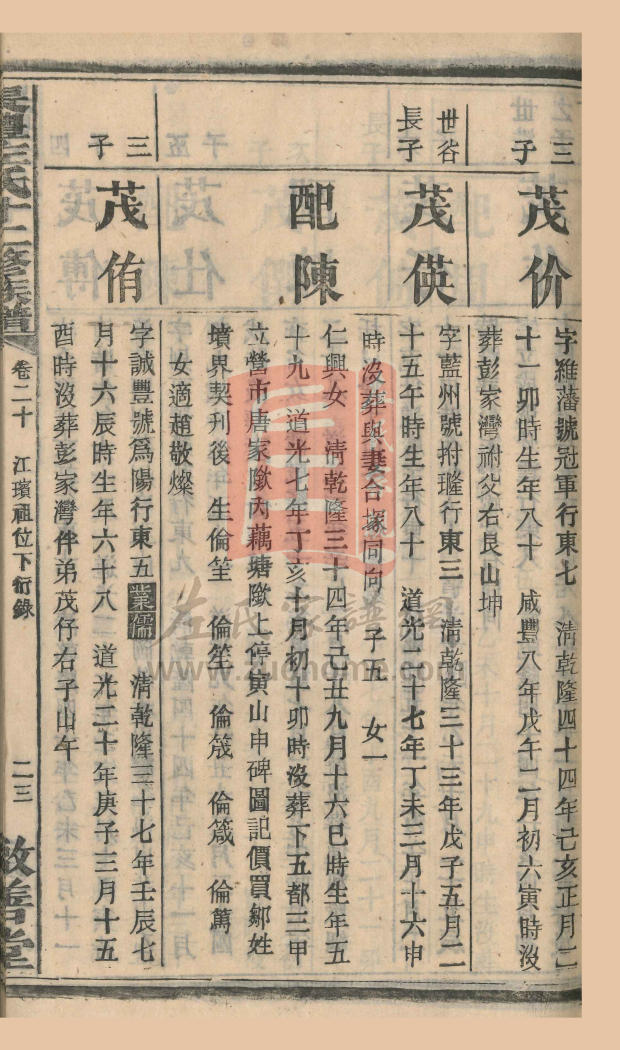 三子
茂价
字維藩號冠軍行東七 清乾隆四十四年己亥正月二
十一卯時生年八十 咸豐八年戊午二月初六寅時沒
葬彭家灣祔父右艮山坤
世谷長子
茂偀
字藍州號拊瓏行東三 清乾隆三十三年戊子五月二
十五午時生年八十 道光二十七年丁未三月十六申
時沒葬與妻合塚同向 子五 女一
配陳
仁興女 清乾隆三十四年己丑九月十六巳時生年五
十九 道光七年丁亥十月初十卯時沒葬下五都三甲
立營市唐家墩內藕塘墩上停寅山申碑圖記價買鄒姓
墳界契刊後 生倫筀 倫笙 倫筬 倫箴 倫篤
女適趙敬燦
三子
茂侑
字誠豐號為陽行東五業儒 清乾隆三十七年壬辰七
月十六辰時生年六十八 道光二十年庚子三月十五
酉時沒葬彭家灣伴弟茂仔右子山午
左氏十二修族譜 卷二十 江璸祖位下衍錄 二三 敦善堂
左氏家譜网
www.zuohome.com